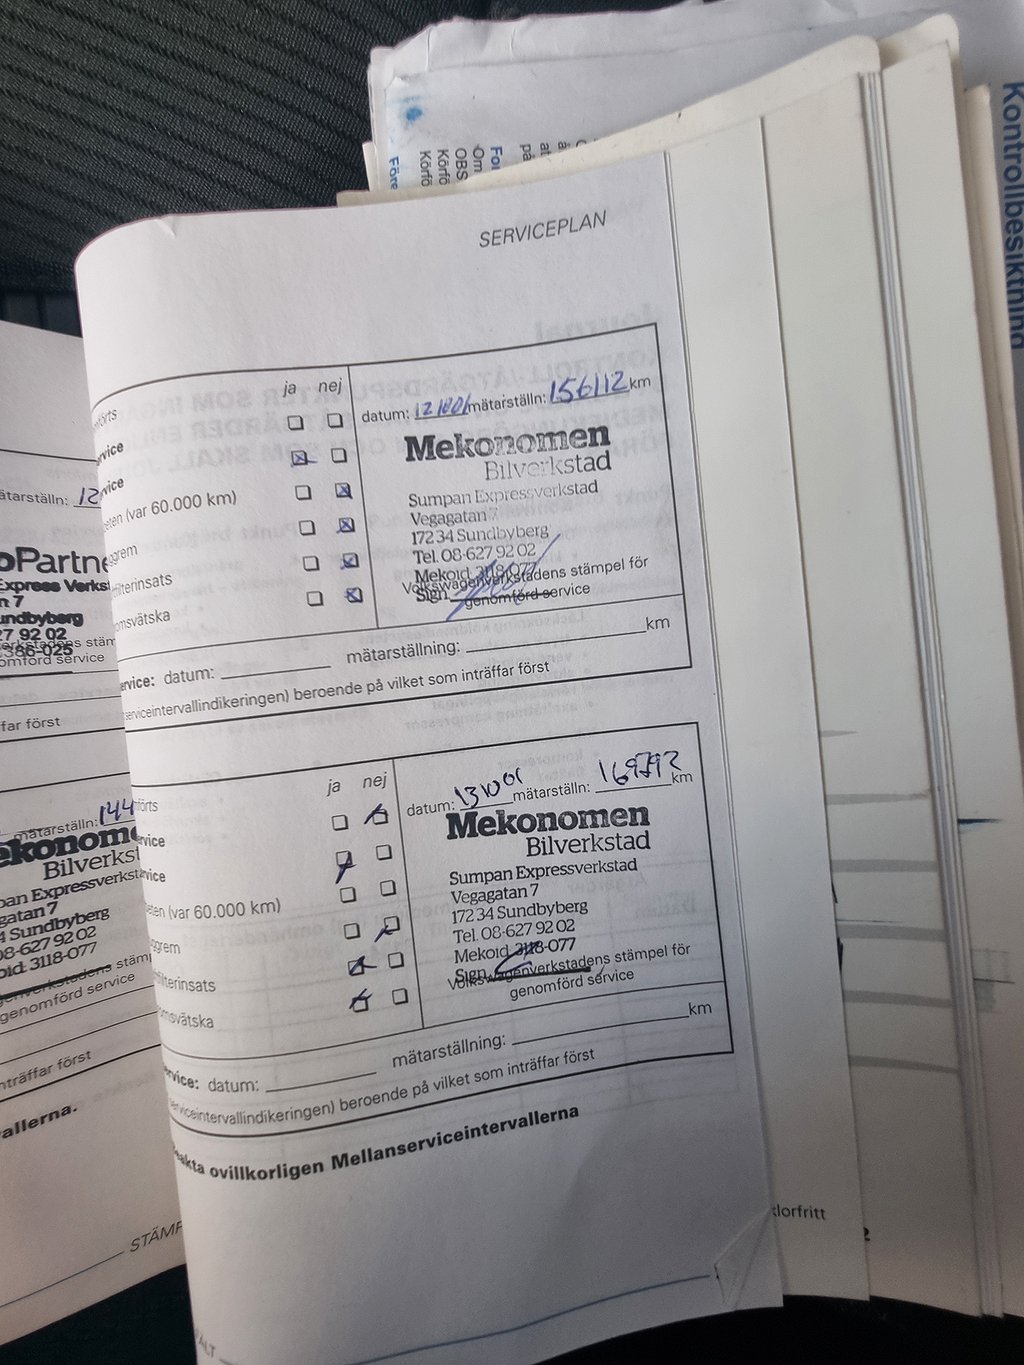 Kontrollbesiktning
Före
Körfö
Körfö
OBS
Om
För
på
at
SERVICEPLAN
ja nej
datum: mätarställn: 156112 km
Mekonomen
Bilverkstad
Sumpan Expressverkstad
Vegagatan 7
172 34 Sundbyberg
Tel. 08-627 92 02
Mekoid 3118-077
Volkswagenverkstadens stämpel för
Sign. genomförd service
örts
rvice
rvice
eten (var 60.000 km)
ggrem
filterinsats
omsvätska
ervice: datum: mätarställning: km
serviceintervallindikeringen) beroende på vilket som inträffar först
ja nej
datum: mätarställn: km
Mekonomen
Bilverkstad
Sumpan Expressverkstad
Vegagatan 7
172 34 Sundbyberg
Tel. 08-627 92 02
Mekoid 3118-077
Sign.
Volkswagenverkstadens stämpel för
genomförd service
örts
rvice
rvice
eten (var 60.000 km)
ggrem
filterinsats
omsvätska
ervice: datum: mätarställning: km
serviceintervallindikeringen) beroende på vilket som inträffar först
akta ovillkorligen Mellanserviceintervallerna
klorfritt
2
ätarställn: 12
oPartne
Express Verkst
n 7
undbyberg
27 92 02
386-025
omförd service
far först
mätarställn: 144
ekonome
Bilverkst
pan Expressverkst
gatan 7
4 Sundbyberg
08-627 92 02
oid: 3118-077
genverkstadens stämp
genomförd service
nträffar först
allerna.
STÄMP
ALT